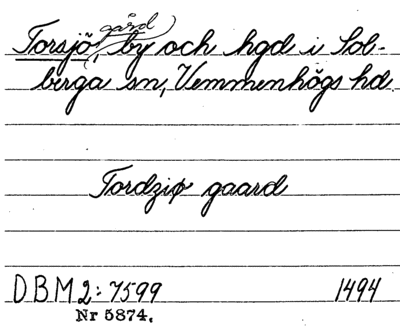 Torsjö, gård, by och hgd i Sol-
berga sn, Vemmenhögs hd.
Tordziø gaard
DBM 2: 7599 1494
Nr 5874.